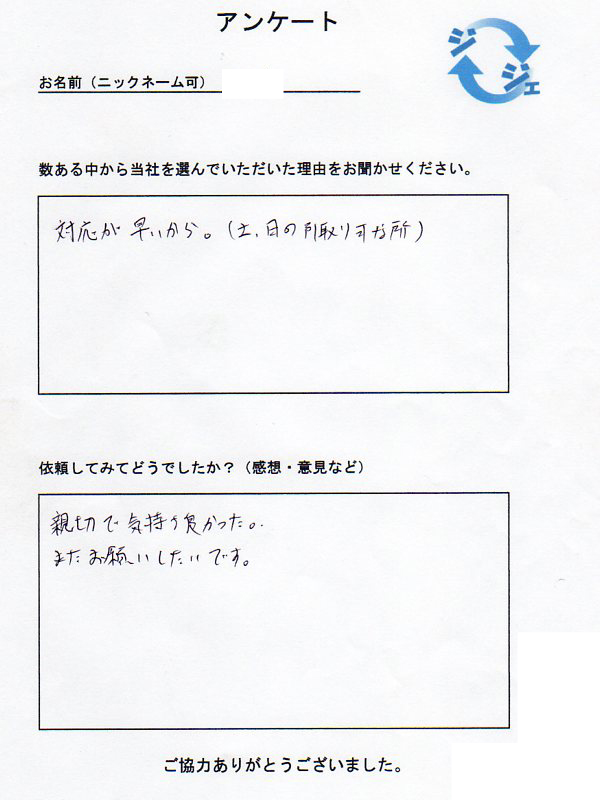 アンケート
ジジェ
お名前（ニックネーム可）
数ある中から当社を選んでいただいた理由をお聞かせください。
対応が早いから。（土、日の引取り可な所）
依頼してみてどうでしたか？（感想・意見など）
親切で気持ち良かった。
またお願いしたいです。
ご協力ありがとうございました。